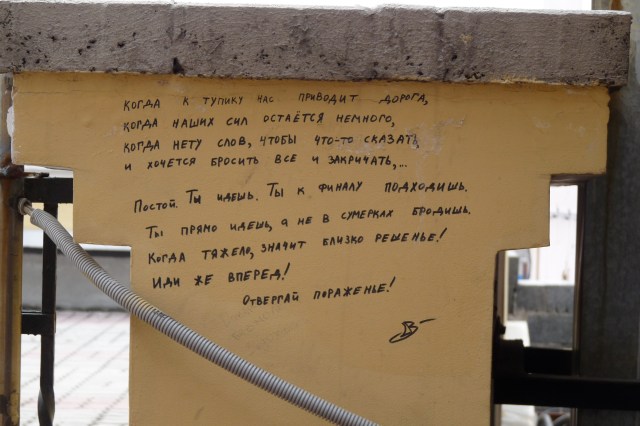 Когда к тупику нас приводит дорога,
Когда наших сил остаётся немного,
Когда нету слов, чтобы что-то сказать
и хочется бросить все и закричать,...
Постой. Ты идешь. Ты к финалу подходишь.
Ты прямо идешь, а не в сумерках бродишь.
Когда тяжело, значит близко решенье!
Иди же вперед!
Отвергай пораженье!